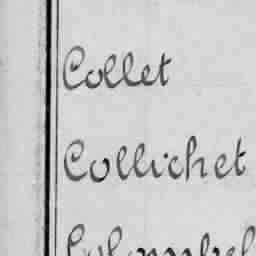 Collet
Collichet